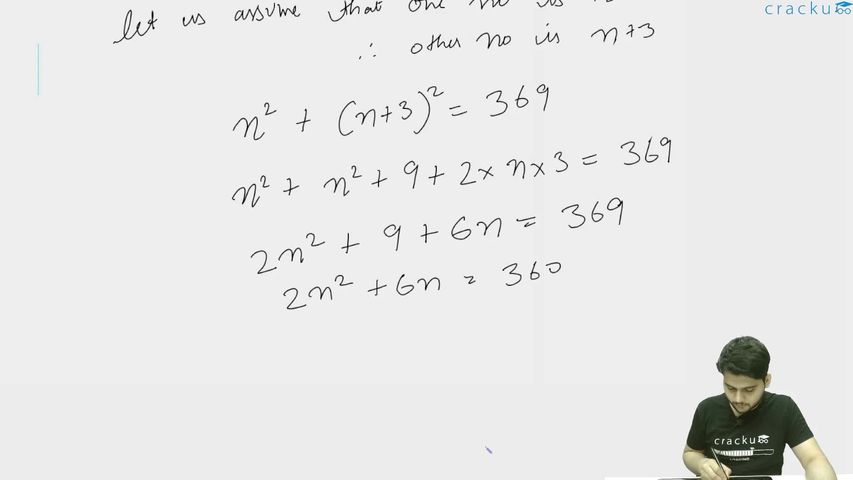 cracku
let us assume that one no is
∴ other no is n+3
n² + (n+3)² = 369
n² + n² + 9 + 2 × n × 3 = 369
2n² + 9 + 6n = 369
2n² + 6n = 360
cracku